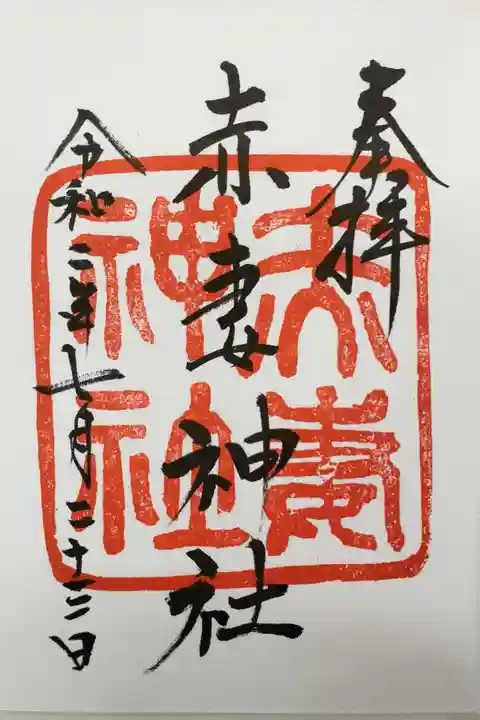 奉拝
赤妻神社
令和二年七月二十三日
赤妻
神社